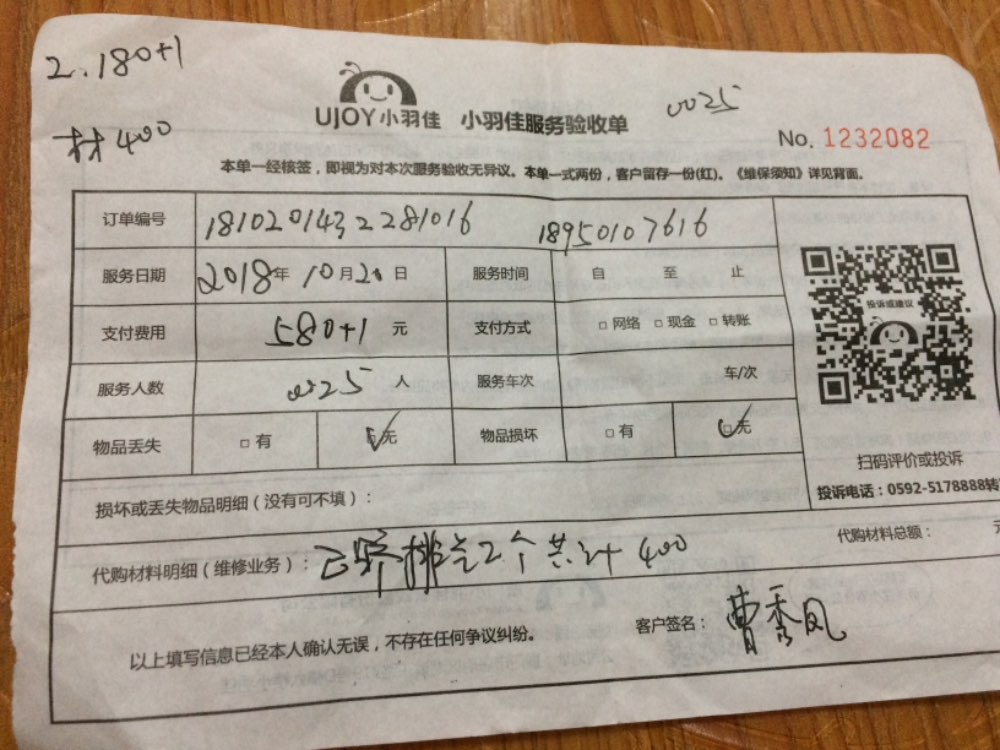 2.180+1
材400
UJOY小羽佳 小羽佳服务验收单
0025
No. 1232082
本单一经核签，即视为对本次服务验收无异议。本单一式两份，客户留存一份(红)。《维保须知》详见背面。
订单编号 1810201432281016 18950107616
服务日期 2018年 10月20日 服务时间 自 至 止
支付费用 580+1 元 支付方式 □网络 □现金 □转账
服务人数 0025 人 服务车次 车/次
物品丢失 □有 □无 物品损坏 □有 □无
投诉或建议
扫码评价或投诉
投诉电话：0592-5178888转
损坏或丢失物品明细（没有可不填）：
代购材料明细（维修业务）： 排气2个共计400
代购材料总额： 元
以上填写信息已经本人确认无误，不存在任何争议纠纷。
客户签名： 曹秀凤